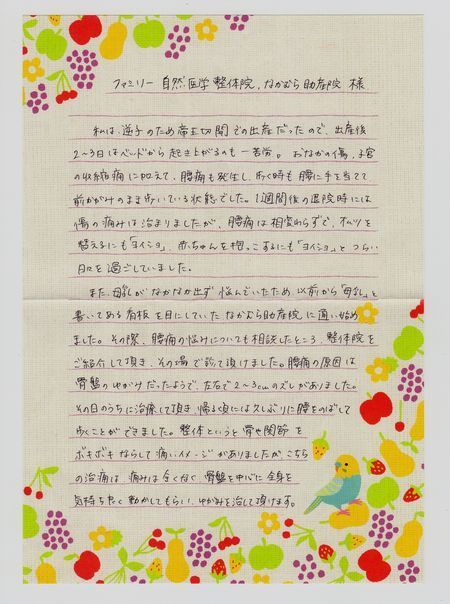 ファミリー自然医学整体院,なかむら助産院 様
私は、逆子のため帝王切開での出産だったので、出産後
2〜3日はベッドから起き上がるのも一苦労。おなかの傷、子宮
の収縮痛に加えて、腰痛も発生し、歩く時も腰に手を当てて
前かがみのまま歩いている状態でした。1週間後の退院時には
傷の痛みは治まりましたが、腰痛は相変わらずで、オムツを
替えるにも「ヨイショ」、赤ちゃんを抱っこするにも「ヨイショ」と つらい
日々を過ごしていました。
また、母乳がなかなか出ず 悩んでいたため、以前から「母乳」と
書いてある看板を目にしていた なかむら助産院に通い始め
ました。その際、腰痛の悩みについても相談したところ、整体院を
ご紹介して頂き、その場で診て頂けました。腰痛の原因は
骨盤のゆがみだったようで、左右で2〜3cmのズレがありました。
その日のうちに治療して頂き、帰る頃には久しぶりに腰をのばして
歩くことができました。整体というと骨や関節を
ボキボキならして痛いイメージがありましたが、こちら
の治療は、痛みは全くなく 骨盤を中心に全身を
気持ち良く動かしてもらい、ゆがみを治して頂けます。